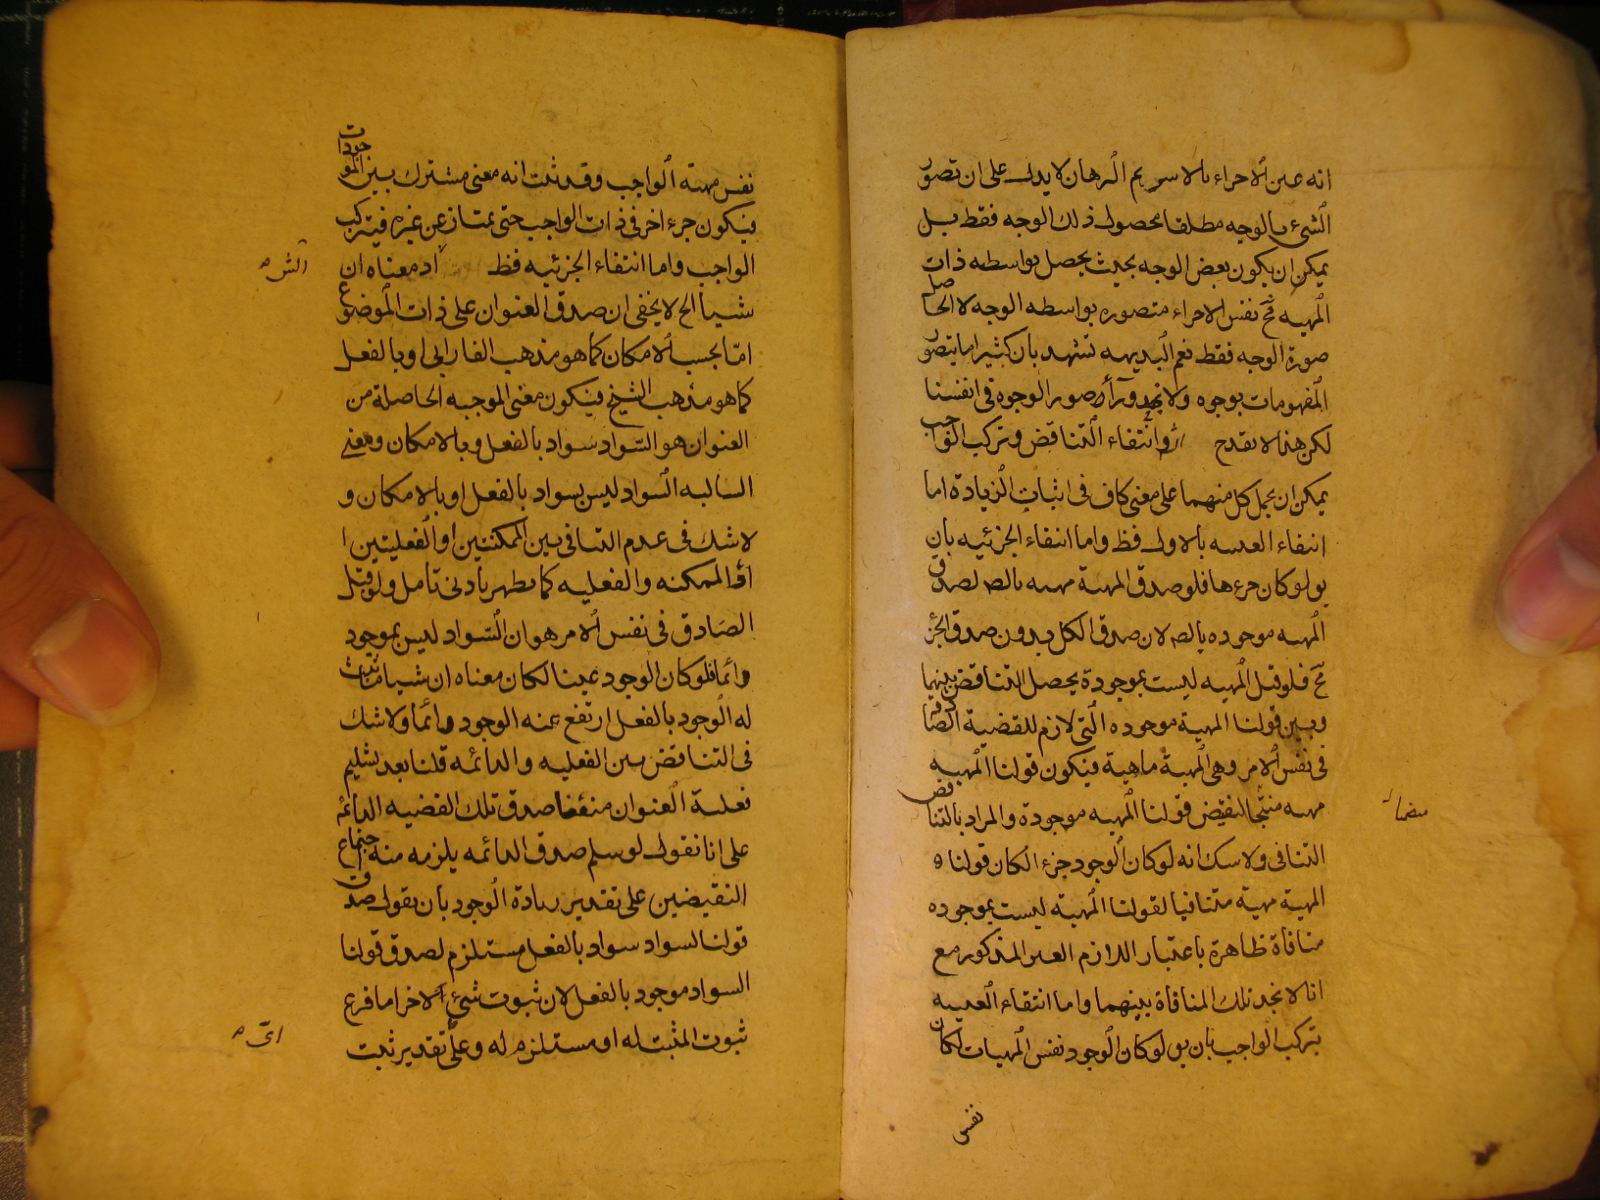 انه عين الاجراء بالاسر يم البرهان لا يدل على ان تصور
الشيء بالوجه مطلقا محصول ذلك الوجه فقط بل
يمكن ان يكون بعض الوجه بحيث يحصل بواسطه ذات
المهيه فح نفس الاجراء متصوره بواسطه الوجه لا الحاصل
صورة الوجه فقط نعم البديهه تشهد بان كثيرا ما يتصور
المفهومات بوجوه ولا نجد ورآء صور الوجوه فى انفسنا
لكن هذا لا يقدح وانتفاء التناقض وتركب الواجب
يمكن ان يحمل كل منهما على معنى كاف فى اثبات الزيادة اما
انتفاء العينيه بالاول فظ واما انتفاء الجزئيه بان
يو لو كان جزءها فلو صدق المهية مهيه بالصه لصدق
المهيه موجوده بالصه لان صدق الكل بدون صدق الجزء
مح فلو قيل المهيه ليست بموجودة يحصل التناقض بينها
وبين قولنا المهية موجوده التى لازم للقضية الصادقة
فى نفس الامر وهى المهية ماهية فيكون قولنا المهيه
مهيه منتجا لنقيض قولنا المهيه موجودة والمراد بالتناقض
التنافى ولا شك انه لو كان الوجود جزء الكان قولنا
المهية مهية متنافيا لقولنا المهية ليست بموجوده
منافاة ظاهرة باعتبار اللازم الغير المذكور مع
انا لا نجد تلك المنافاة بينهما واما انتفاء العينيه
بتركب الواجب بان يو لو كان الوجود نفس المهيات لكان
نفس
نفس مهيته الواجب وقد ثبت انه معنى مشترك بين الموجودات
فيكون جزء اخر فى ذات الواجب حتى يمتاز عن غيره فيتركب
الواجب واما انتفاء الجزئيه فظ اد معناه ان
شيئا الح لا يخفى ان صدق العنوان على ذات الموضوع
امّا بحسب الامكان كما هو مذهب الفارابى او بالفعل
كما هو مذهب الشيخ فيكون معنى الموجبه الحاصلة من
العنوان هو السّواد سواد بالفعل او بالامكان ومعنى
السالبه السّواد ليس بسواد بالفعل او بالامكان و
لا شك فى عدم التنافى بين الممكنتين او الفعليتين
او الممكنه والفعليه كما يظهر بادنى تامل ولو قيل
الصادق فى نفس الامر هو ان السّواد ليس بموجود
دائما فلو كان الوجود عينا لكان معناه ان شيئا ثبت
له الوجود بالفعل ارتفع عنه الوجود دائما ولا شك
فى التناقض بين الفعليه والدائمه قلنا بعد تسليم
فعلية العنوان منعنا صدق تلك القضيه الدائمة
على انا نقول لو سلم صدق الدائمه يلزمه منه اجتماع
النقيضين على تقدير زيادة الوجود بان نقول صدق
قولنا السواد سواد بالفعل مستلزم لصدق قولنا
السواد موجود بالفعل لان ثبوت شئ لاخر اما فرع
ثبوت المثبت له او مستلزم له وعلى تقدير ثبت